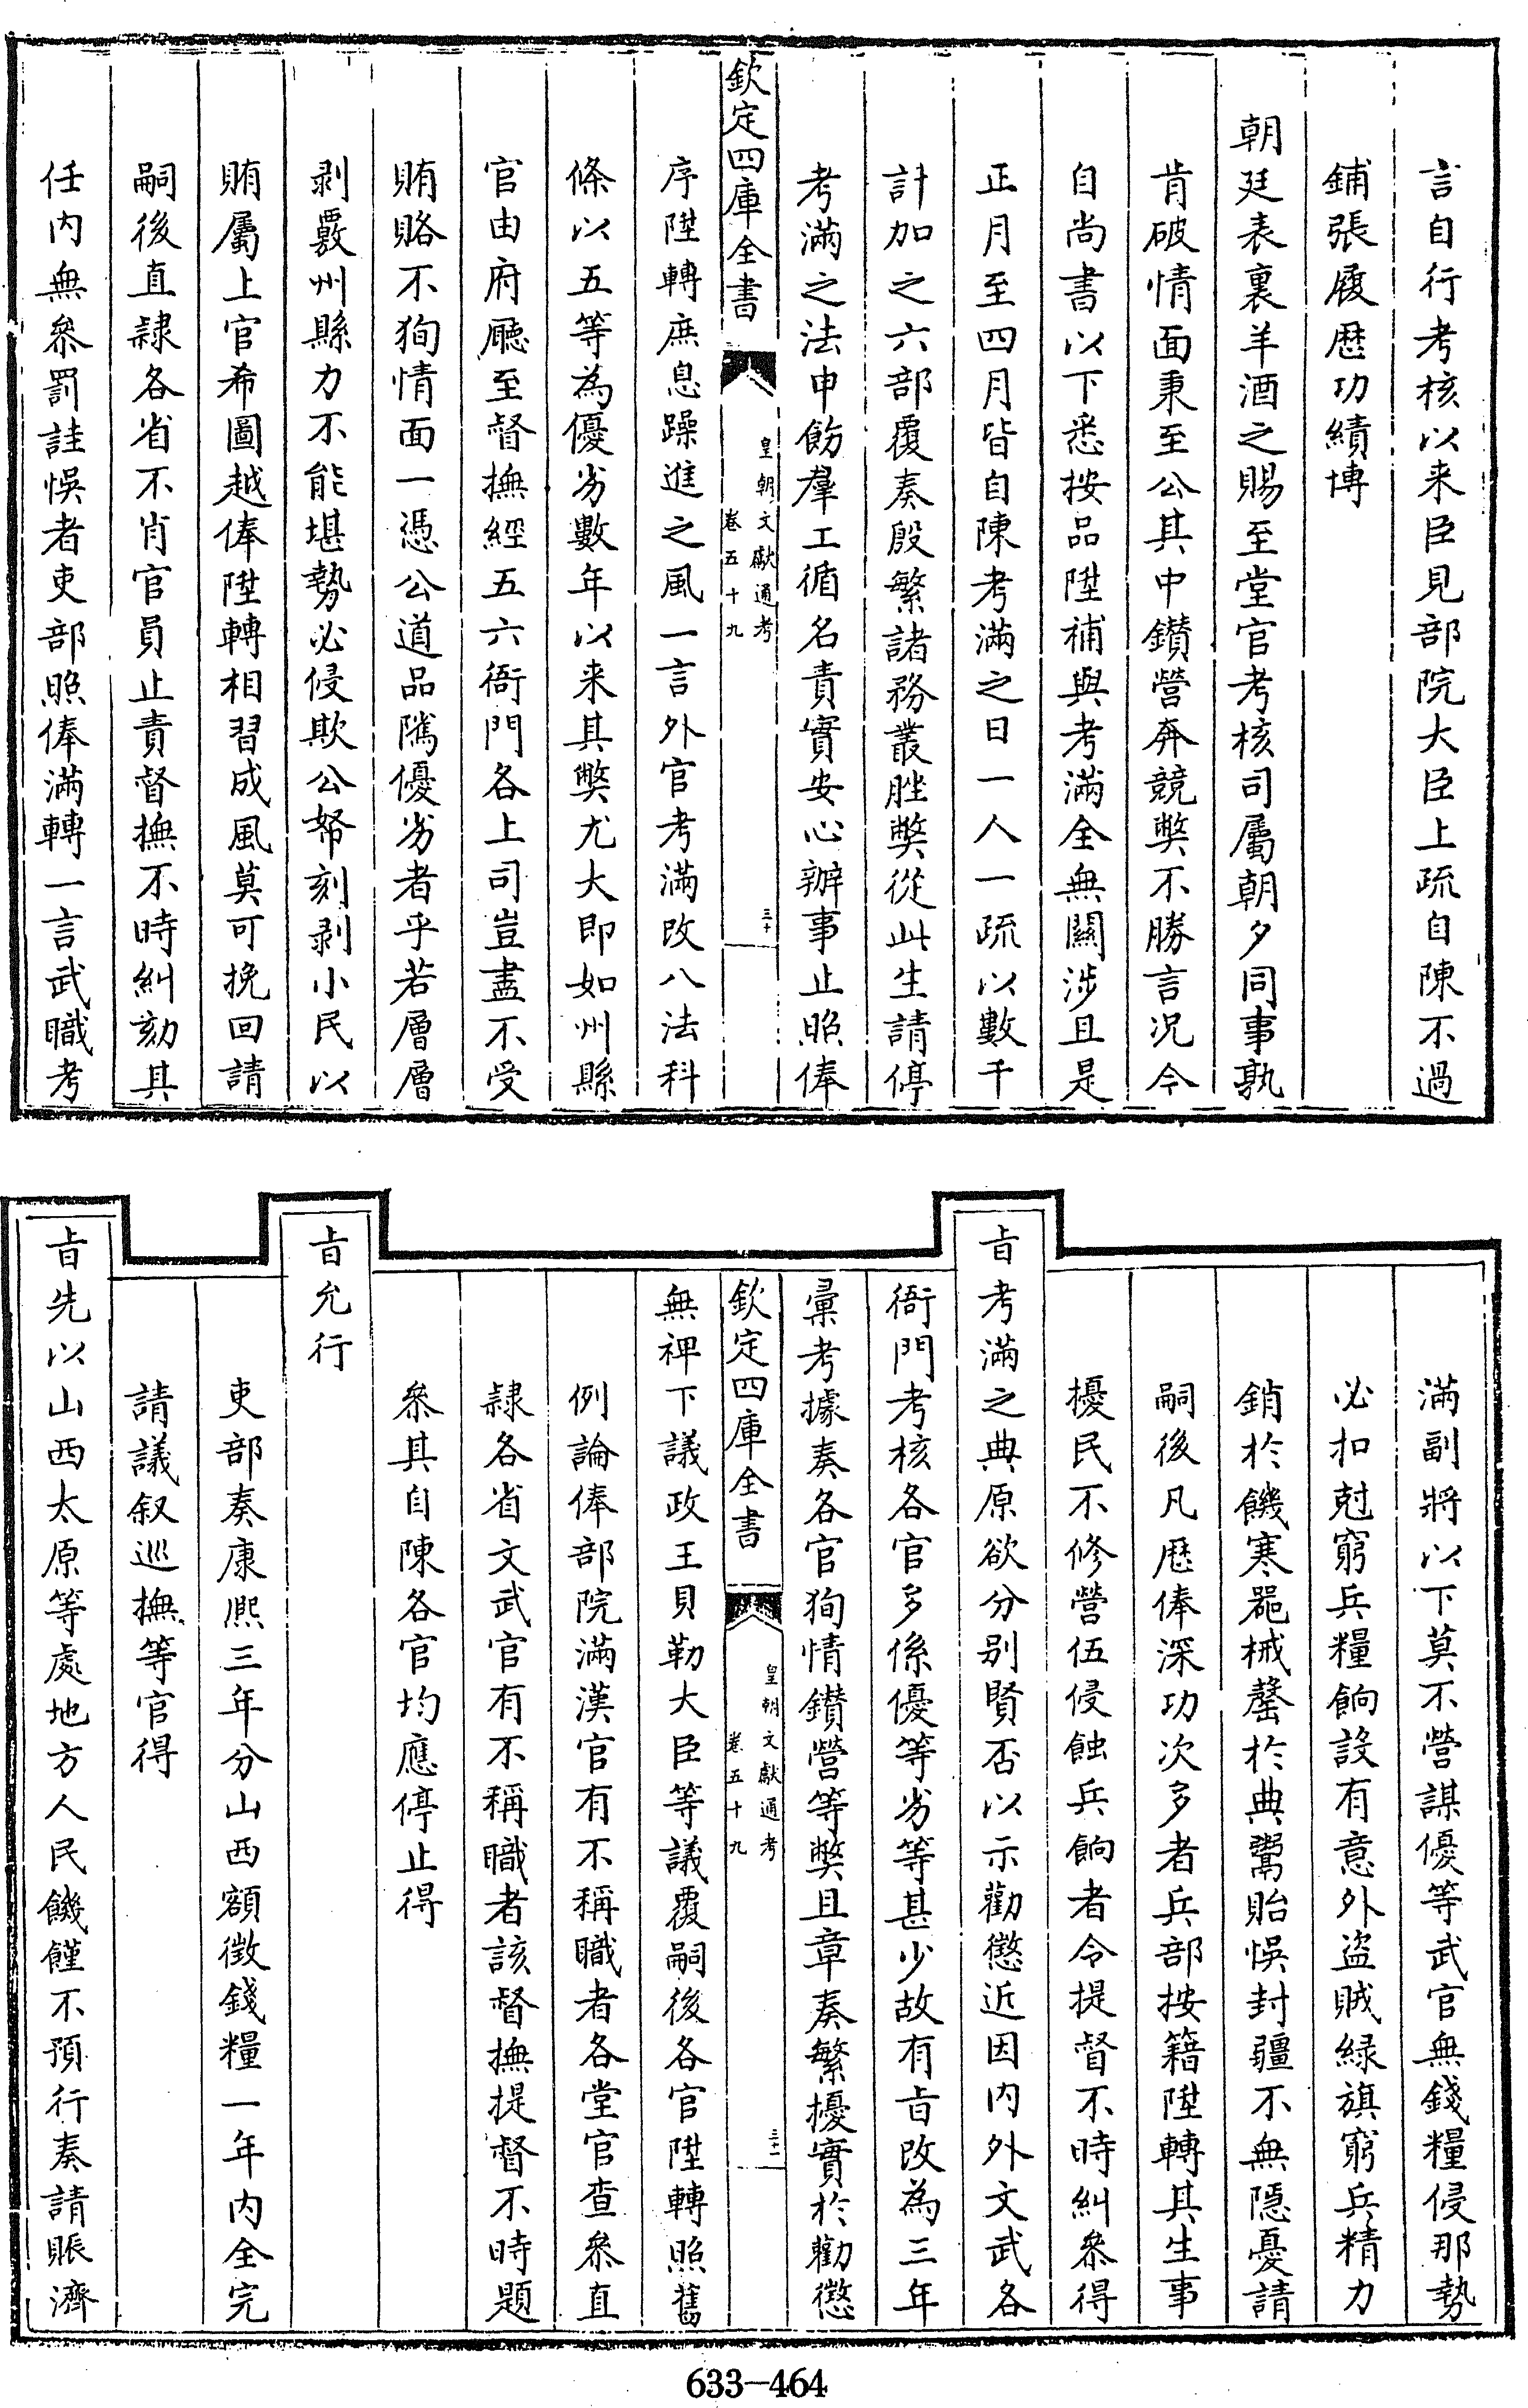 言自行考核以来臣見部院大臣上疏自陳不過
鋪張履歴功績博
朝廷表裏羊酒之賜至堂官考核司屬朝夕同事孰
肯破情面秉至公其中鑽營奔競弊不勝言况今
自尚書以下悉按品陞補與考滿全無關涉且是
正月至四月皆自陳考滿之日一人一疏以數千
計加之六部覆奏殷繁諸務叢脞弊從此生請停
考滿之法申飭羣工循名責實安心辦事止照俸
欽定四庫全書
皇朝文獻通考
卷五十九
三十
序陞轉庶息躁進之風一言外官考滿改八法科
條以五等為優劣數年以来其弊尤大即如州縣
官由府廳至督撫經五六衙門各上司豈盡不受
賄賂不狥情面一憑公道品隲優劣者乎若層層
剥覈州縣力不能堪勢必侵欺公帑刻剥小民以
賄屬上官希圖越俸陞轉相習成風莫可挽回請
嗣後直隷各省不肖官員止責督撫不時糾劾其
任内無叅罰詿悞者吏部照俸滿轉一言武職考
滿副將以下莫不營謀優等武官無錢糧侵那勢
必扣尅窮兵糧餉設有意外盗賊緑旗窮兵精力
銷於饑寒噐械罄於典鬻貽悞封疆不無隱憂請
嗣後凡歴俸深功次多者兵部按籍陞轉其生事
擾民不修營伍侵蝕兵餉者令提督不時糾叅得
㫖考滿之典原欲分别賢否以示勸懲近因内外文武各
衙門考核各官多係優等劣等甚少故有㫖改為三年
彙考據奏各官狥情鑽營等弊且章奏繁擾實於勸懲
欽定四庫全書
皇朝文獻通考
卷五十九
三十一
無裨下議政王貝勒大臣等議覆嗣後各官陞轉照舊
例論俸部院滿漢官有不稱職者各堂官查叅直
隷各省文武官有不稱職者該督撫提督不時題
叅其自陳各官均應停止得
㫖允行
吏部奏康熙三年分山西額徴錢糧一年内全完
請議叙巡撫等官得
㫖先以山西太原等處地方人民饑饉不預行奏請賑濟
633-464